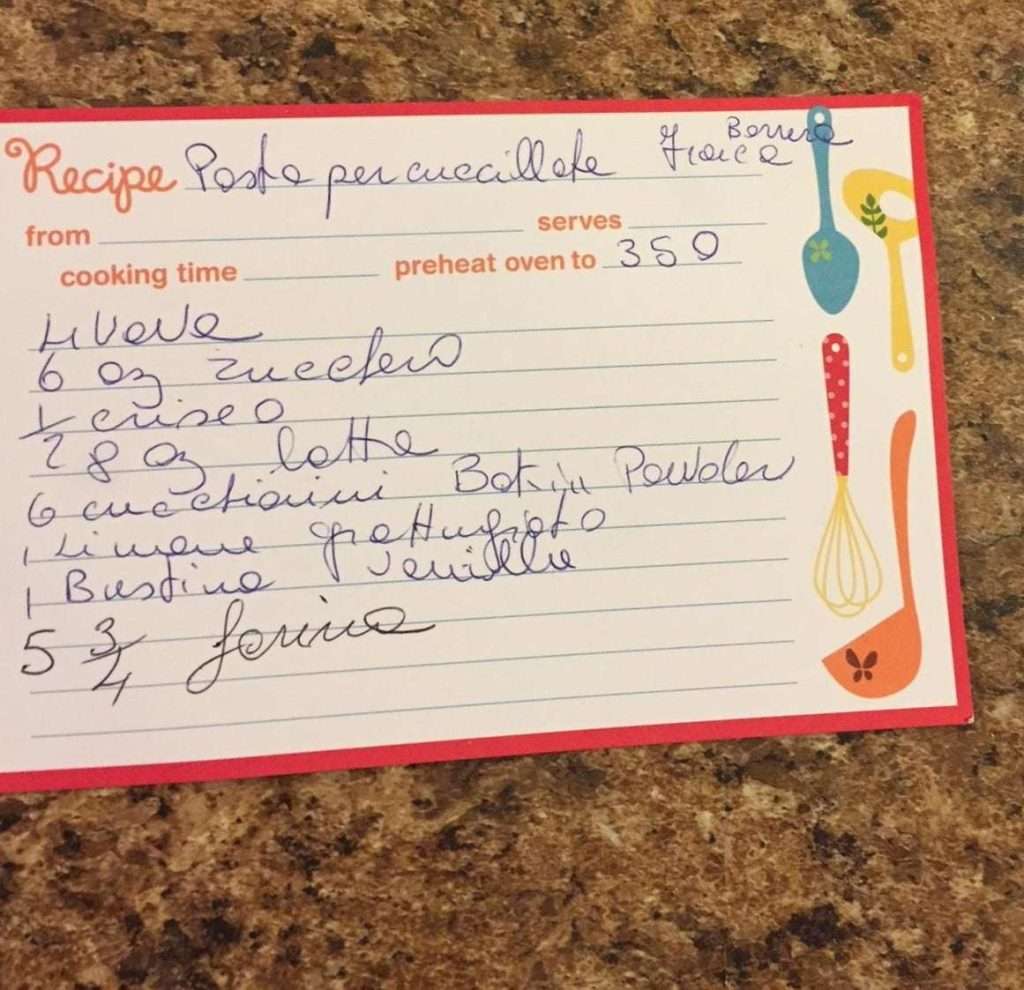 Recipe Pasta per cuccillate
from serves
cooking time preheat oven to 350
4 Uova
6 oz zucchero
1/2 criseo
8 oz latte
6 cucchiaini Bakin Powder
1 Limone grattugiato
1 Bustina Venillia
5 3/4 farina